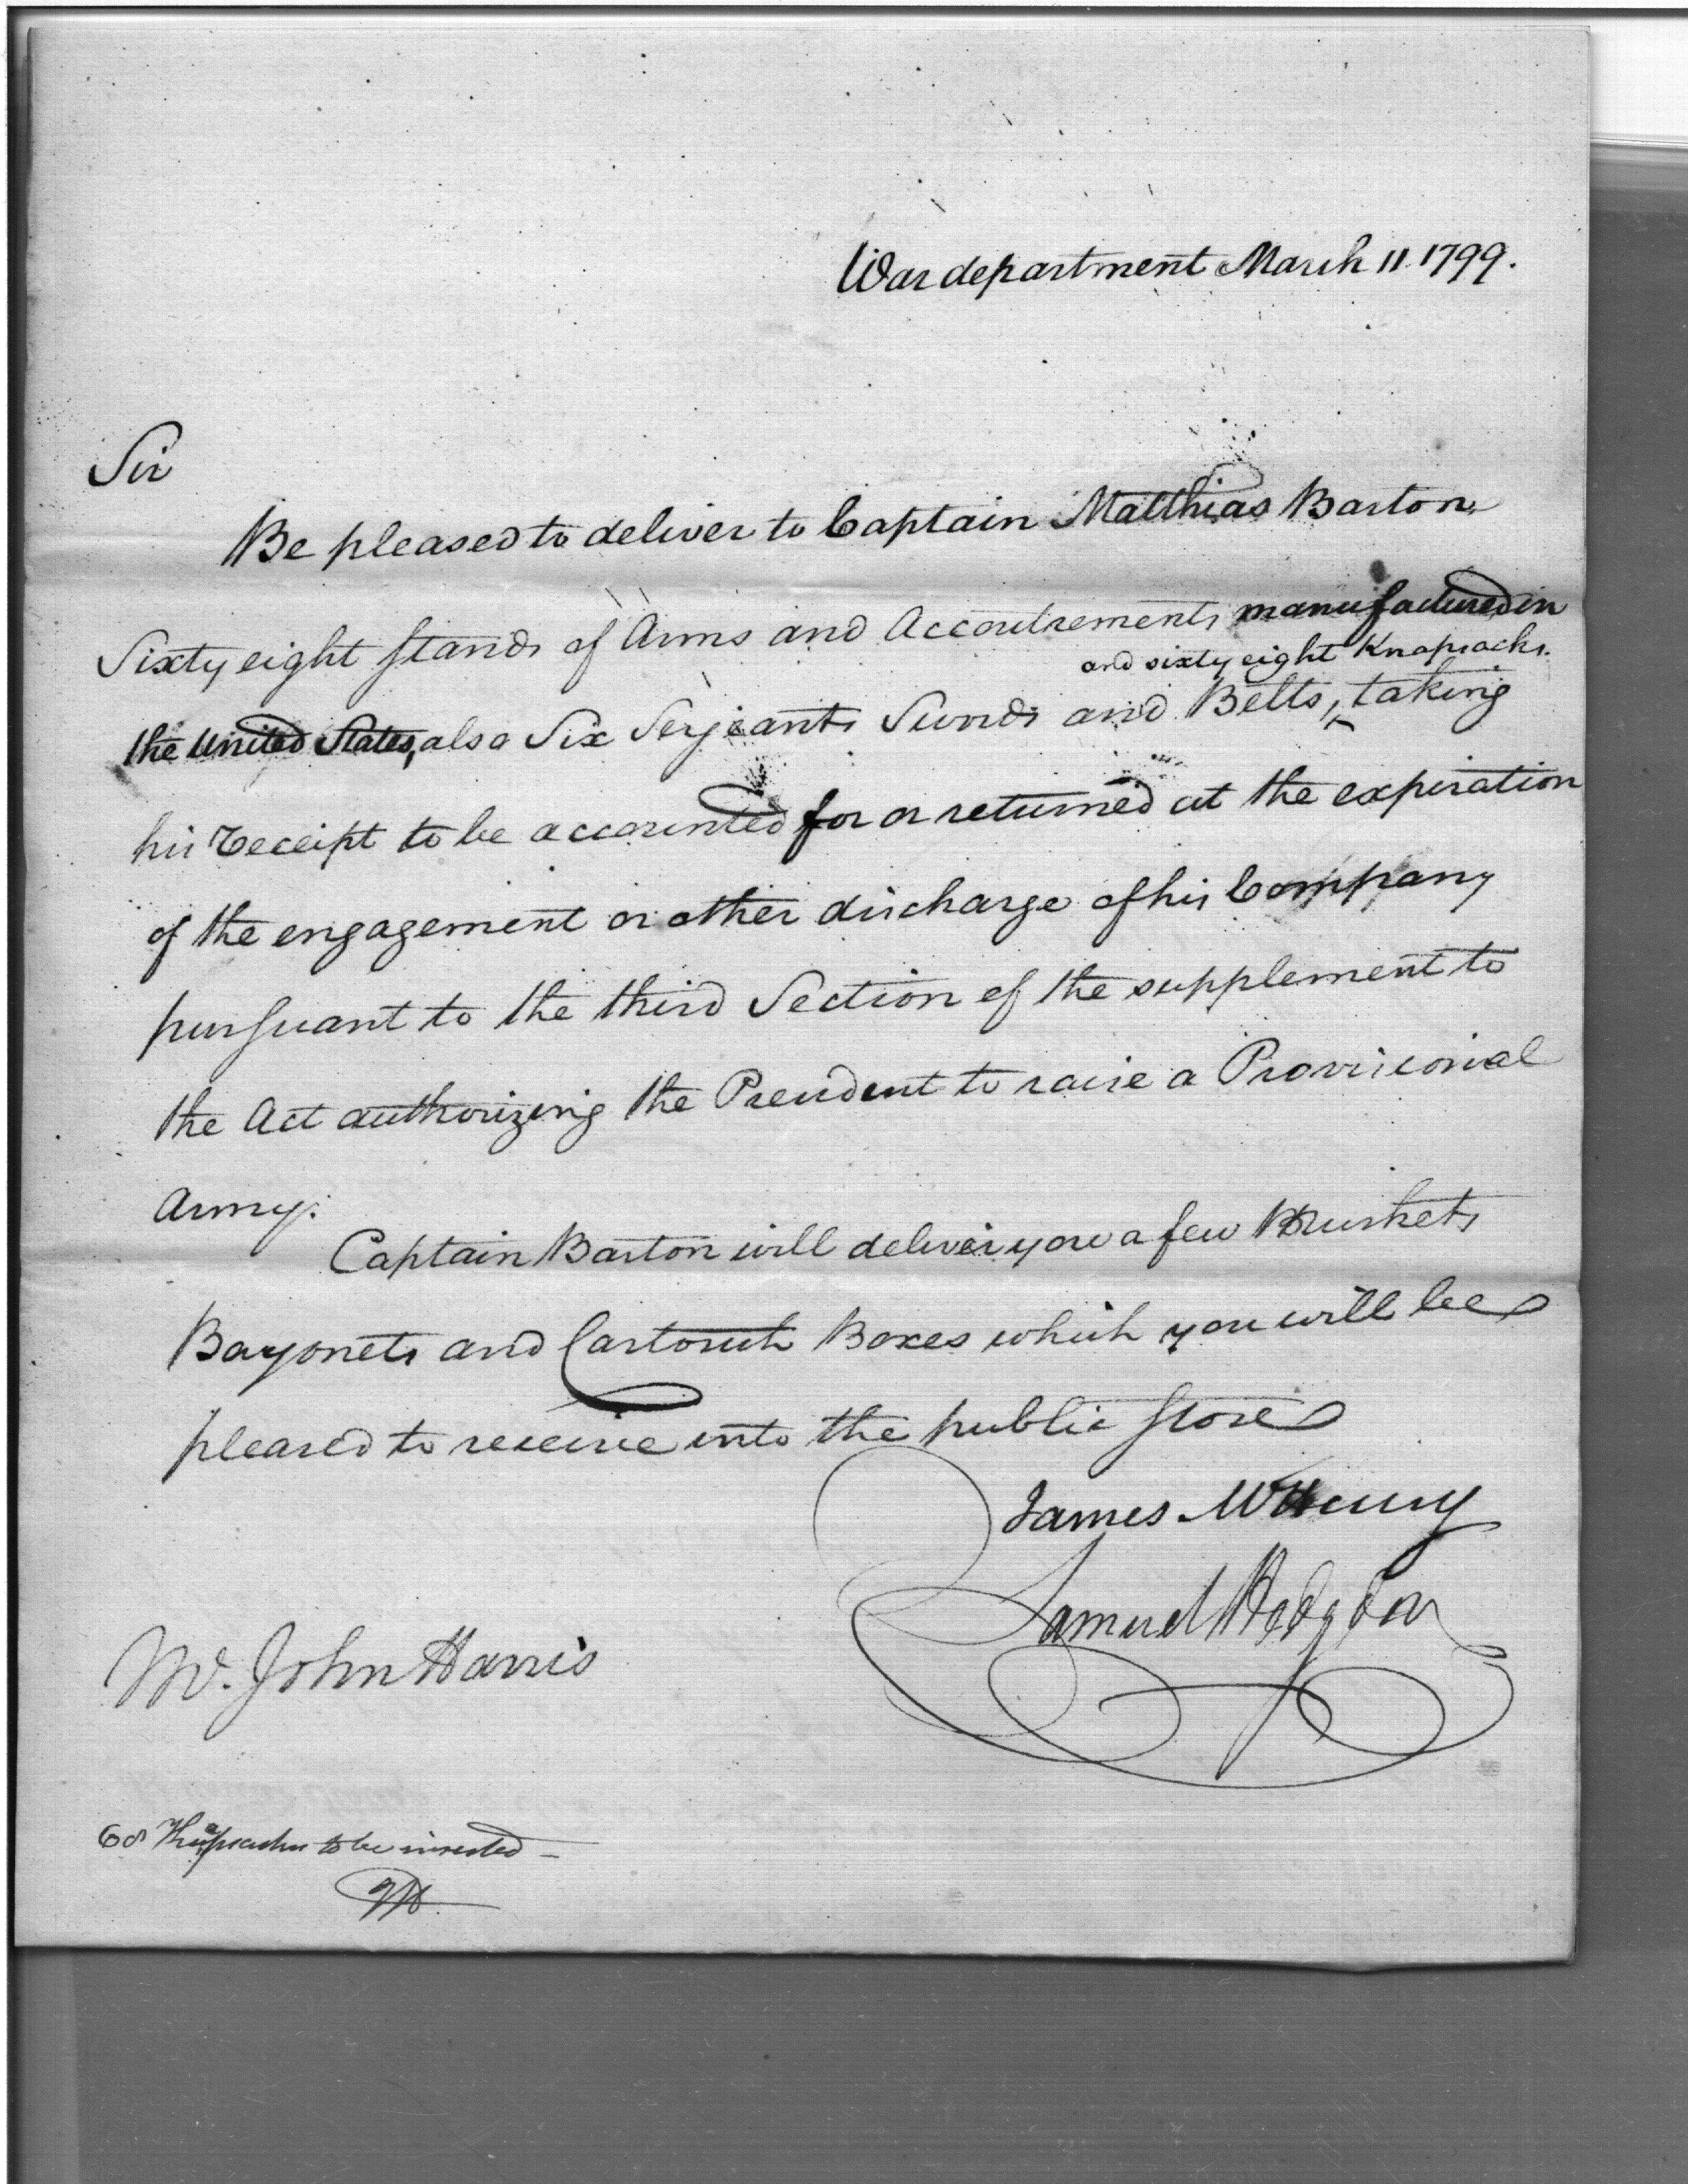 War department March 11 1799.
Sir
Be pleased to deliver to Captain Matthias Barton
Sixty eight stands of Arms and Accoutrements manufactured in
and sixty eight Knapsacks.
the United States, also Six Serjeants Swords and Belts, ^ taking
his receipt to be accounted for or returned at the expiration
of the engagement or other discharge of his Company
pursuant to the third Section of the supplement to
the Act authorizing the President to raise a Provisional
Army.
Captain Barton will deliver you a few Muskets
Bayonets and Cartouch Boxes which you will be
pleased to receive into the public store
James McHenry
Samuel Hodgdon
Mr. John Harris
68 Knapsacks to be inserted —